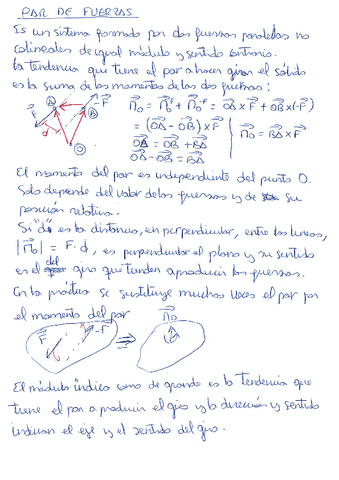 PAR DE FUERZAS
Es un sistema formado por dos fuerzas paralelas no
colineales de igual módulo y sentido contrario.
La tendencia que tiene el par a hacer girar el sólido
es la suma de los momentos de las dos fuerzas:
F A B -F d O
M⃗o = M⃗o^F + M⃗o^-F = OA × F + OB × (-F)
= (OA - OB) × F
OA = OB + BA
OA - OB = BA
M⃗o = BA × F
El momento del par es independiente del punto O.
Solo depende del valor de las fuerzas y de su
posición relativa.
Si "d" es la distancia, en perpendicular, entre las líneas,
|M⃗o| = F·d, es perpendicular al plano y su sentido
es el del giro que tienden a producir las fuerzas.
En la práctica se sustituye muchas veces el par por
el momento del par M⃗o
F -F ⇒
El módulo indica como de grande es la tendencia que
tiene el par a producir el giro y la dirección y sentido
indican el eje y el sentido del giro.